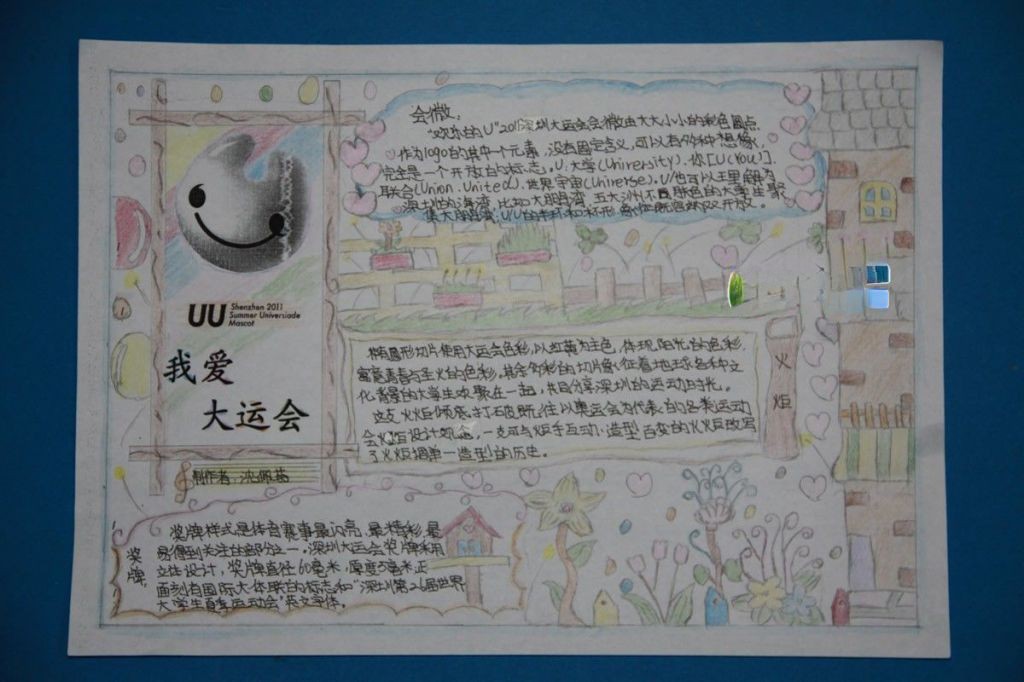 会徽:
"欢乐的U"2011深圳大运会会徽由大大小小的彩色圆点
作为logo的其中一个元素,没有固定含义,可以有多种想像,
完全是一个开放的标志。U:大学(University).你[U(You)].
联合(Union.United).世界宇宙(Universe).U也可以理解为
深圳的海湾
集大朋湾:UU的
UU Shenzhen 2011
Summer Universiade
Mascot
我爱
大运会
制作者:沈佩
椭圆形切片使用大运会色彩,以红黄为主色,体现阳光的色彩,
寓意青春与圣火的色彩,其余多彩的切片象征着地球各种文
化背景的大学生欢聚在一起,共同分享深圳的运动时光。
这支火炬彻底打破既往以奥运会为代表的各类运动
会火炬设计观念,一支可与炬手互动.造型百变的火炬改写
了火炬揭单一造型的历史。
火炬
奖牌
奖牌样式是体育赛事最闪亮、最精彩、最
易得到关注的部分之一。深圳大运会奖牌采用
立体设计,奖牌直径60毫米,厚度5毫米,正
面刻有国际大体联的标志和"深圳第26届世界
大学生夏季运动会"英文字体。